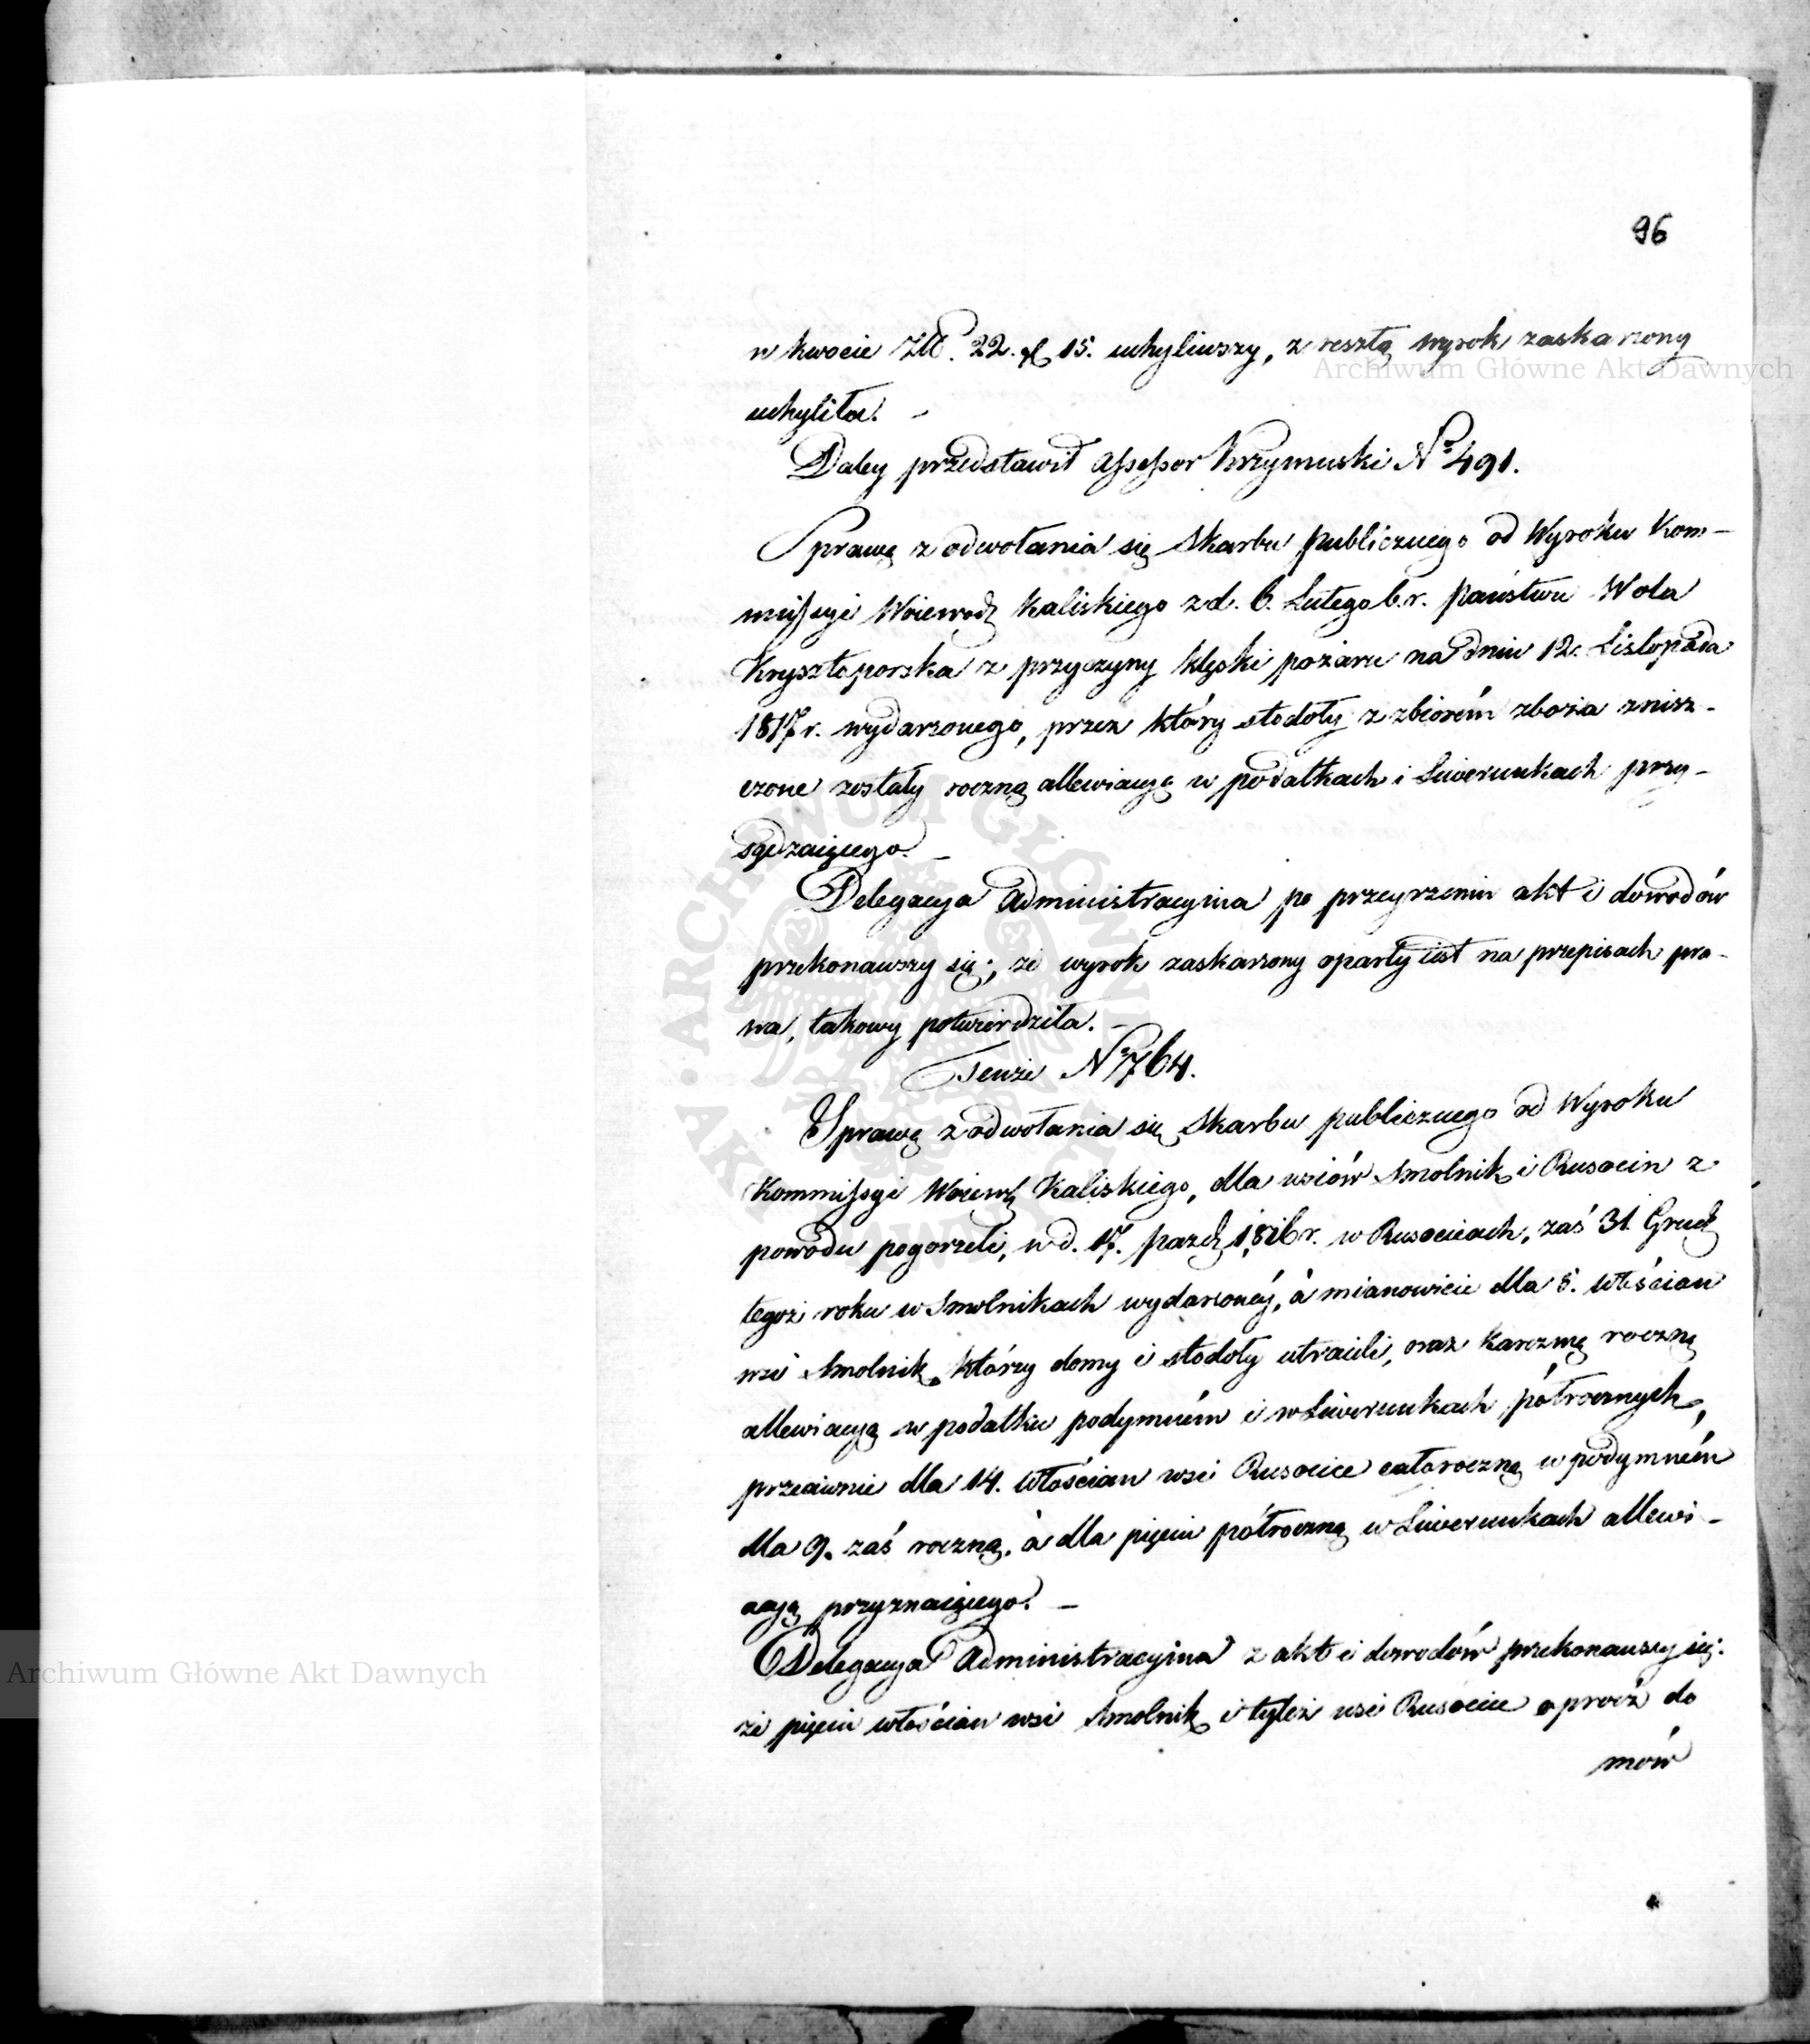 96
w kwocie Złł. 22. gr 15. uchyliwszy, z resztą wyrok zaskarzony
Archiwum Główne Akt Dawnych
uchyliła. –
Daley przedstawił Assessor Krzymuski No 491.
Sprawę z odwołania się Skarbu publicznego od Wyroku Kom-
missyi Woiewodz Kaliskiego z d. 6. Lutego b. r. państwu Wola
Krysztoporska z przyczyny klęski pożaru na dniu 12. Listopada
1817 r. wydarzonego, przez który stodoły z zbiorém zboża znisz-
czone zostały roczną allewiacyą w podatkach i Liwerunkach przy-
sądzaiącego. –
Delegacya Administracyina po przeyrzeniu akt i dowodów
przekonawszy się; że wyrok zaskarzony oparty iest na przepisach pra-
wa, takowy potwierdziła. –
Tenże No 764.
Sprawę z odwołania się Skarbu publicznego od Wyroku
Kommissyi Woiewdz Kaliskiego, dla wsiów Smolnik i Rusocin z
powodu pogorzeli, w d. 17. pazdz 1816 r. w Rusocicach, zaś 31. Grudz
tegoż roku w Smolnikach wydarzonéy, à mianowicie dla 5. włościan
wsi Smolnik, którzy domy i stodoły utracili, oraz karczmę roczną
allewiacyą w podatku podymném i w Liwerunkach półrocznych,
przeciwnie dla 14. włościan wsi Rusocice całoroczną w podymném
dla 9. zaś roczną, à dla pięciu półroczną w Liwerunkach allewi-
acyą przyznaiącego. –
Delegacya Administracyina z akt i dowodów przekonawszy się:
że pięciu włościan wsi Smolnik i tyleż wsi Rusocice oprócz do
mów
Archiwum Główne Akt Dawnych
ARCHIWUM GŁÓWNE AKT DAWNYCH